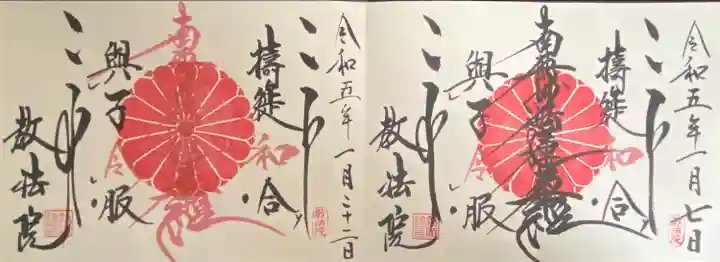 令和五年一月二十二日
擣簁和合
南無妙法蓮華経
與子令服
教法院
令和五年一月七日
擣簁和合
南無妙法蓮華経
與子令服
教法院